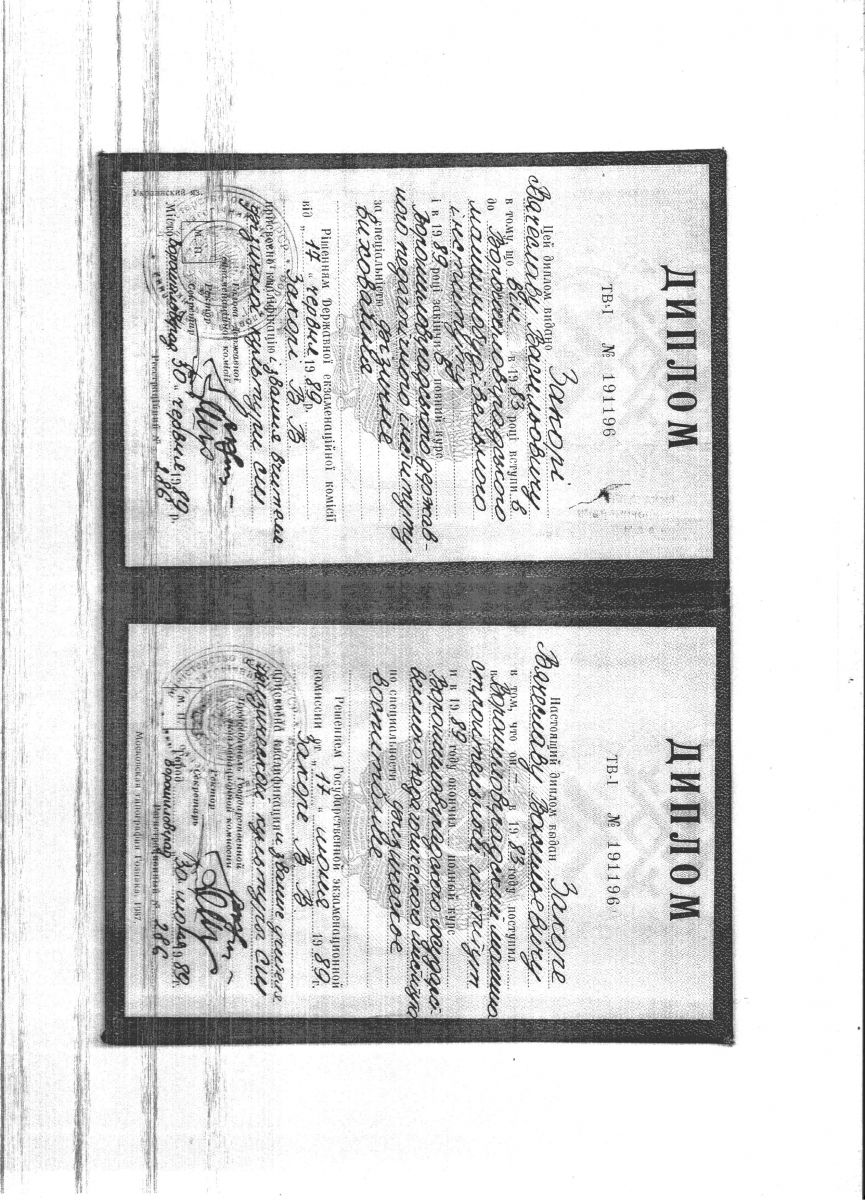 ДИПЛОМ
ТВ-І № 191196
Цей диплом видано Закорі
Вячеславу Васильовичу
в тому, що він в 1983 році вступи в
до Ворошиловградського
машинобудівельного
інституту
і в 1989 році закінчи в повний курс
Ворошиловградского держав-
ного педагогічного інституту
за спеціальністю фізичне
виховання
Рішенням Державної екзаменаційної комісії
від „ 17 “ червня 1989 р.
Закорі В В
присвоєно кваліфікацію і звання вчителя
фізичної культури СШ
Голова Державної
екзаменаційної комісії
Ректор
Секретар
М. П.
Місто Ворошиловград 30 “ червня 1989 р.
Реєстраційний № 286
Украинский яз.
ДИПЛОМ
ТВ-І № 191196
Настоящий диплом выдан Закоре
Вячеславу Васильевичу
в том, что он – в 1983 году поступил
в Ворошиловградский машино
строительный институт
и в 1989 году окончил полный курс
Ворошиловградского государст-
венного педагогического института
по специальности физическое
воспитание
Решением Государственной экзаменационной
комиссии от „ 17 “ июня 1989 г.
Закоре В В
присвоена квалификация и звание учителя
физической культуры СШ
Председатель Государственной
экзаменационной комиссии
Ректор
Секретарь
М. П.
Город Ворошиловград 30 июня 1989 г.
Регистрационный № 286
Московская типография Гознака. 1987.